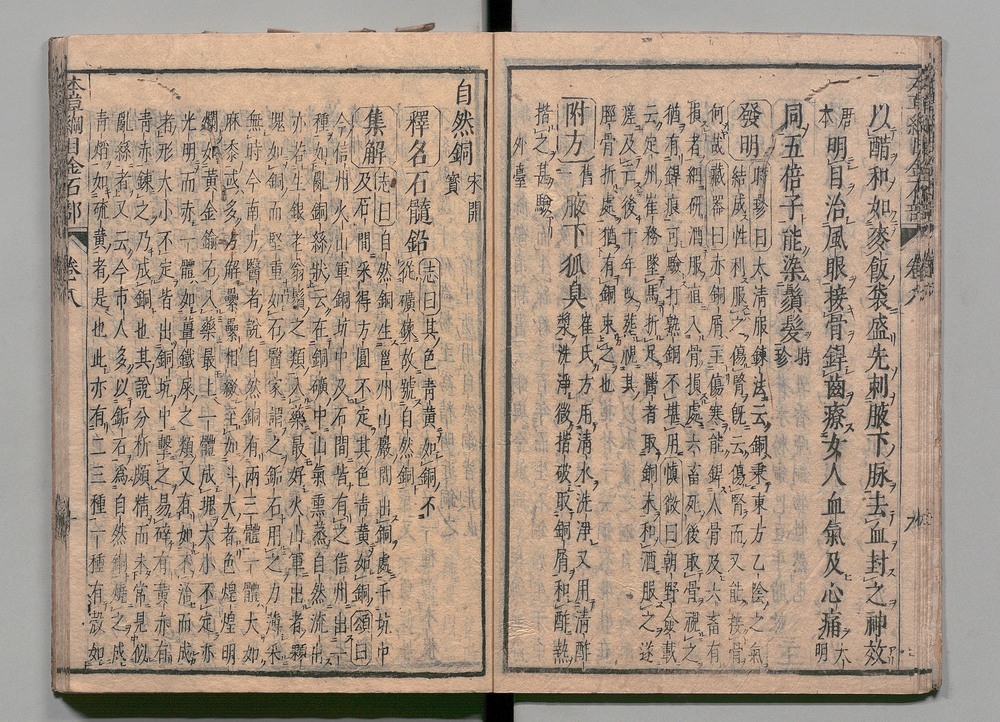 以醋和如麥飯袋盛先刺腋下脉去血封之神效
本明目治風眼接骨銲齒療女人血氣及心痛大明
同五倍子能染鬚髮時珍
發明時珍曰太清服鍊法云銅秉東方乙陰之氣
結成性利服之傷腎既云傷腎而又能接骨
何哉藏器曰赤銅屑主傷寒能銲人骨及六畜有
損者細研酒服直入骨損處六畜死後取骨視之
猶有銲痕可驗打熟銅不堪用慎微曰朝野僉載
云定州崔務墜馬折足醫者取銅末和酒服之遂
瘥及亡後十年改葬視其
脛骨折處猶有銅束之也
附方舊一腋下狐臭崔氏方用清水洗淨又用清酢
漿洗淨微揩破取銅屑和酢熱
揩之甚驗
外臺
自然銅宋開寶
釋名石髓鉛志曰其色青黃如銅不
從礦煉故號自然銅
集解志曰自然銅生邕州山巖間出銅處于坑中
及石間采得方圓不定其色青黃如銅頌曰
今信州火山軍銅坑中及石間皆有之信州出一
種如亂銅絲狀云在銅礦中山氣熏蒸自然流出
亦若生銀老翁鬚之類入藥最好火山軍出者顆
塊如銅而堅重如石醫家謂之䥴石用之力薄采
無時今南方醫者說自然銅有兩三體一體大如
麻黍或多方解纍纍相綴至如斗大者色煌煌明
爛如黃金鍮石入藥最上一體成塊大小不定亦
光明而赤一體如薑鐵屎之類又有如不冶而成
者形大小不定皆出銅坑中擊之易碎有黃赤有
青赤鍊之乃成銅也其說分析頗精而未常見似
亂絲者又云今市人多以䥴石為自然銅燒之成
青焰如硫黃者是也此亦有二三種一種有殼如
本草綱目金石部
卷八